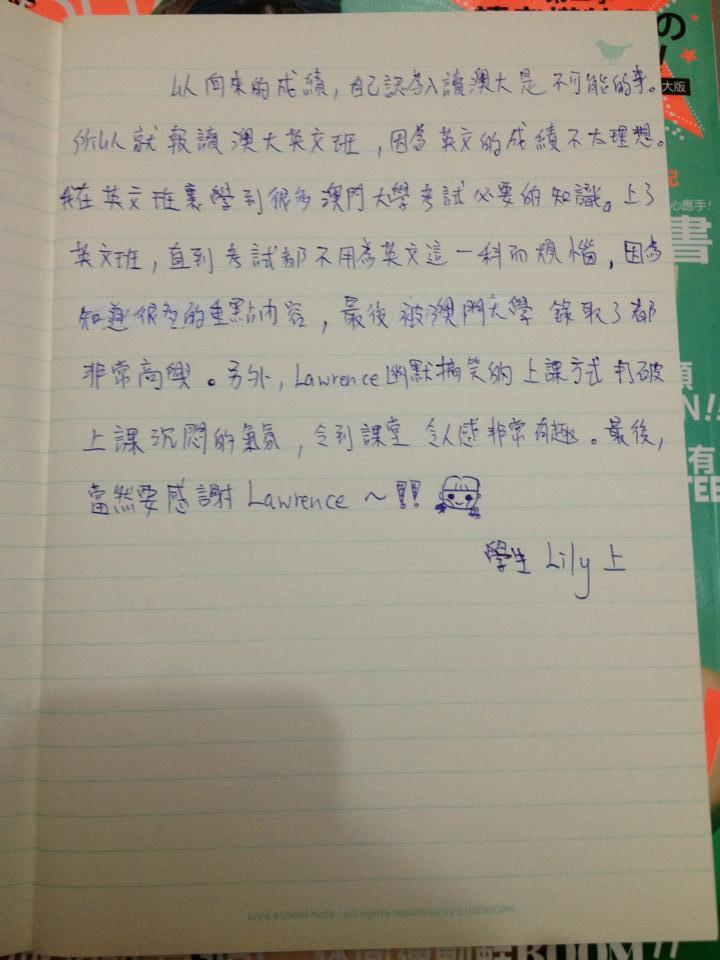 大版
記
心應手!
以向來的成績，自己認為入讀澳大是不可能的事。
所以就報讀澳大英文班，因為英文的成績不太理想。
我在英文班裏學到很多澳門大學考試必要的知識。上了
英文班，直到考試都不用為英文這一科而煩惱，因為
知道很多的重點內容，最後被澳門大學錄取了都
非常高興。另外，Lawrence幽默搞笑的上課方式打破
上課沉悶的氣氛，令到課堂令人感非常有趣。最後，
當然要感謝 Lawrence ~!!
學生 Lily 上
書
N!!
有
piyo school note · all rights reserved by LIVEWORK
ROOM!!